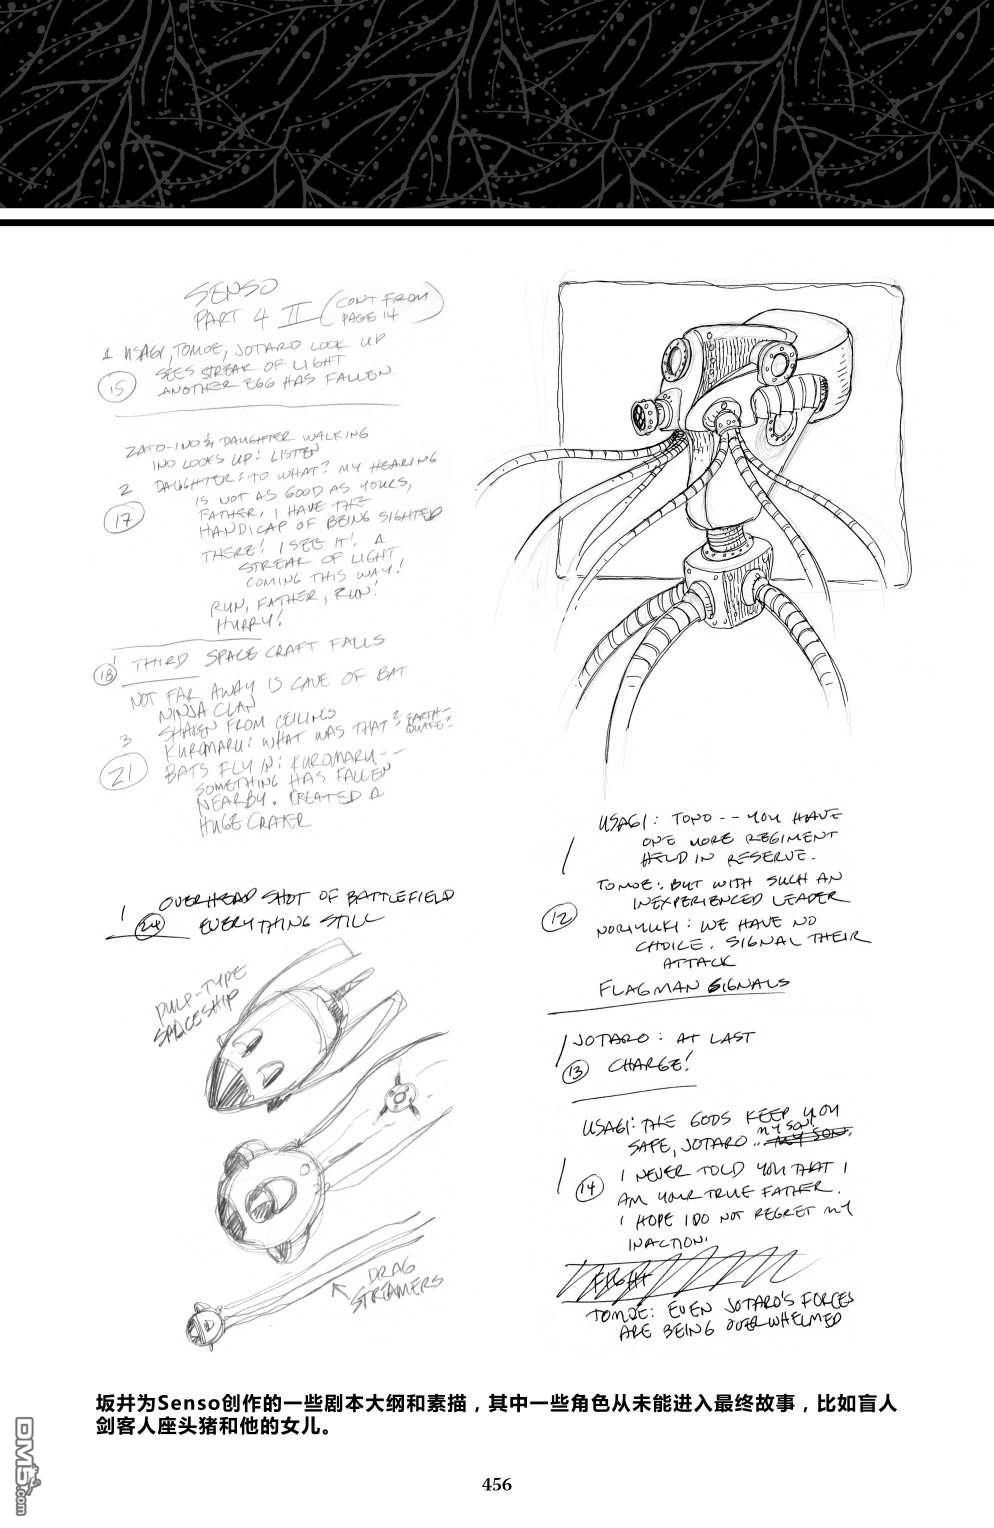 SENSO
PART 4 II (CONT FROM
PAGE 14)
1 USAGI, TOMOE, JOTARO LOOK UP
SEES STREAK OF LIGHT
15 ANOTHER EGG HAS FALLEN
ZATO-INO & DAUGHTER WALKING
INO LOOKS UP: LISTEN
2 DAUGHTER: TO WHAT? MY HEARING
IS NOT AS GOOD AS YOURS,
17 FATHER, I HAVE THE
HANDICAP OF BEING SIGHTED
THERE! I SEE IT! A
STREAK OF LIGHT
COMING THIS WAY!
RUN, FATHER, RUN!
HURRY!
1
18 THIRD SPACE CRAFT FALLS
NOT FAR AWAY IS CAVE OF BAT
NINJA CLAN
SHAKEN FROM CEILINGS
3 KUROMARU: WHAT WAS THAT? EARTH-
QUAKE?
21 BATS FLY IN: KUROMARU--
SOMETHING HAS FALLEN
NEARBY. CREATED A
HUGE CRATER
1 OVERHEAD SHOT OF BATTLEFIELD
24 EVERYTHING STILL
PULP-TYPE
SPACESHIP
DRAG
STREAMERS
USAGI: TONO -- YOU HAVE
1 ONE MORE REGIMENT
HELD IN RESERVE.
TOMOE: BUT WITH SUCH AN
12 INEXPERIENCED LEADER
NORIYUKI: WE HAVE NO
CHOICE. SIGNAL THEIR
ATTACK
FLAGMAN SIGNALS
1 JOTARO: AT LAST
13 CHARGE!
USAGI: THE GODS KEEP YOU
SAFE, JOTARO.. my son MY SON.
1 I NEVER TOLD YOU THAT I
14 AM YOUR TRUE FATHER.
I HOPE I DO NOT REGRET MY
INACTION.
FIGHT
TOMOE: EVEN JOTARO'S FORCES
ARE BEING OVERWHELMED
坂井为Senso创作的一些剧本大纲和素描，其中一些角色从未能进入最终故事，比如盲人
剑客人座头猪和他的女儿。
456
DM5.com